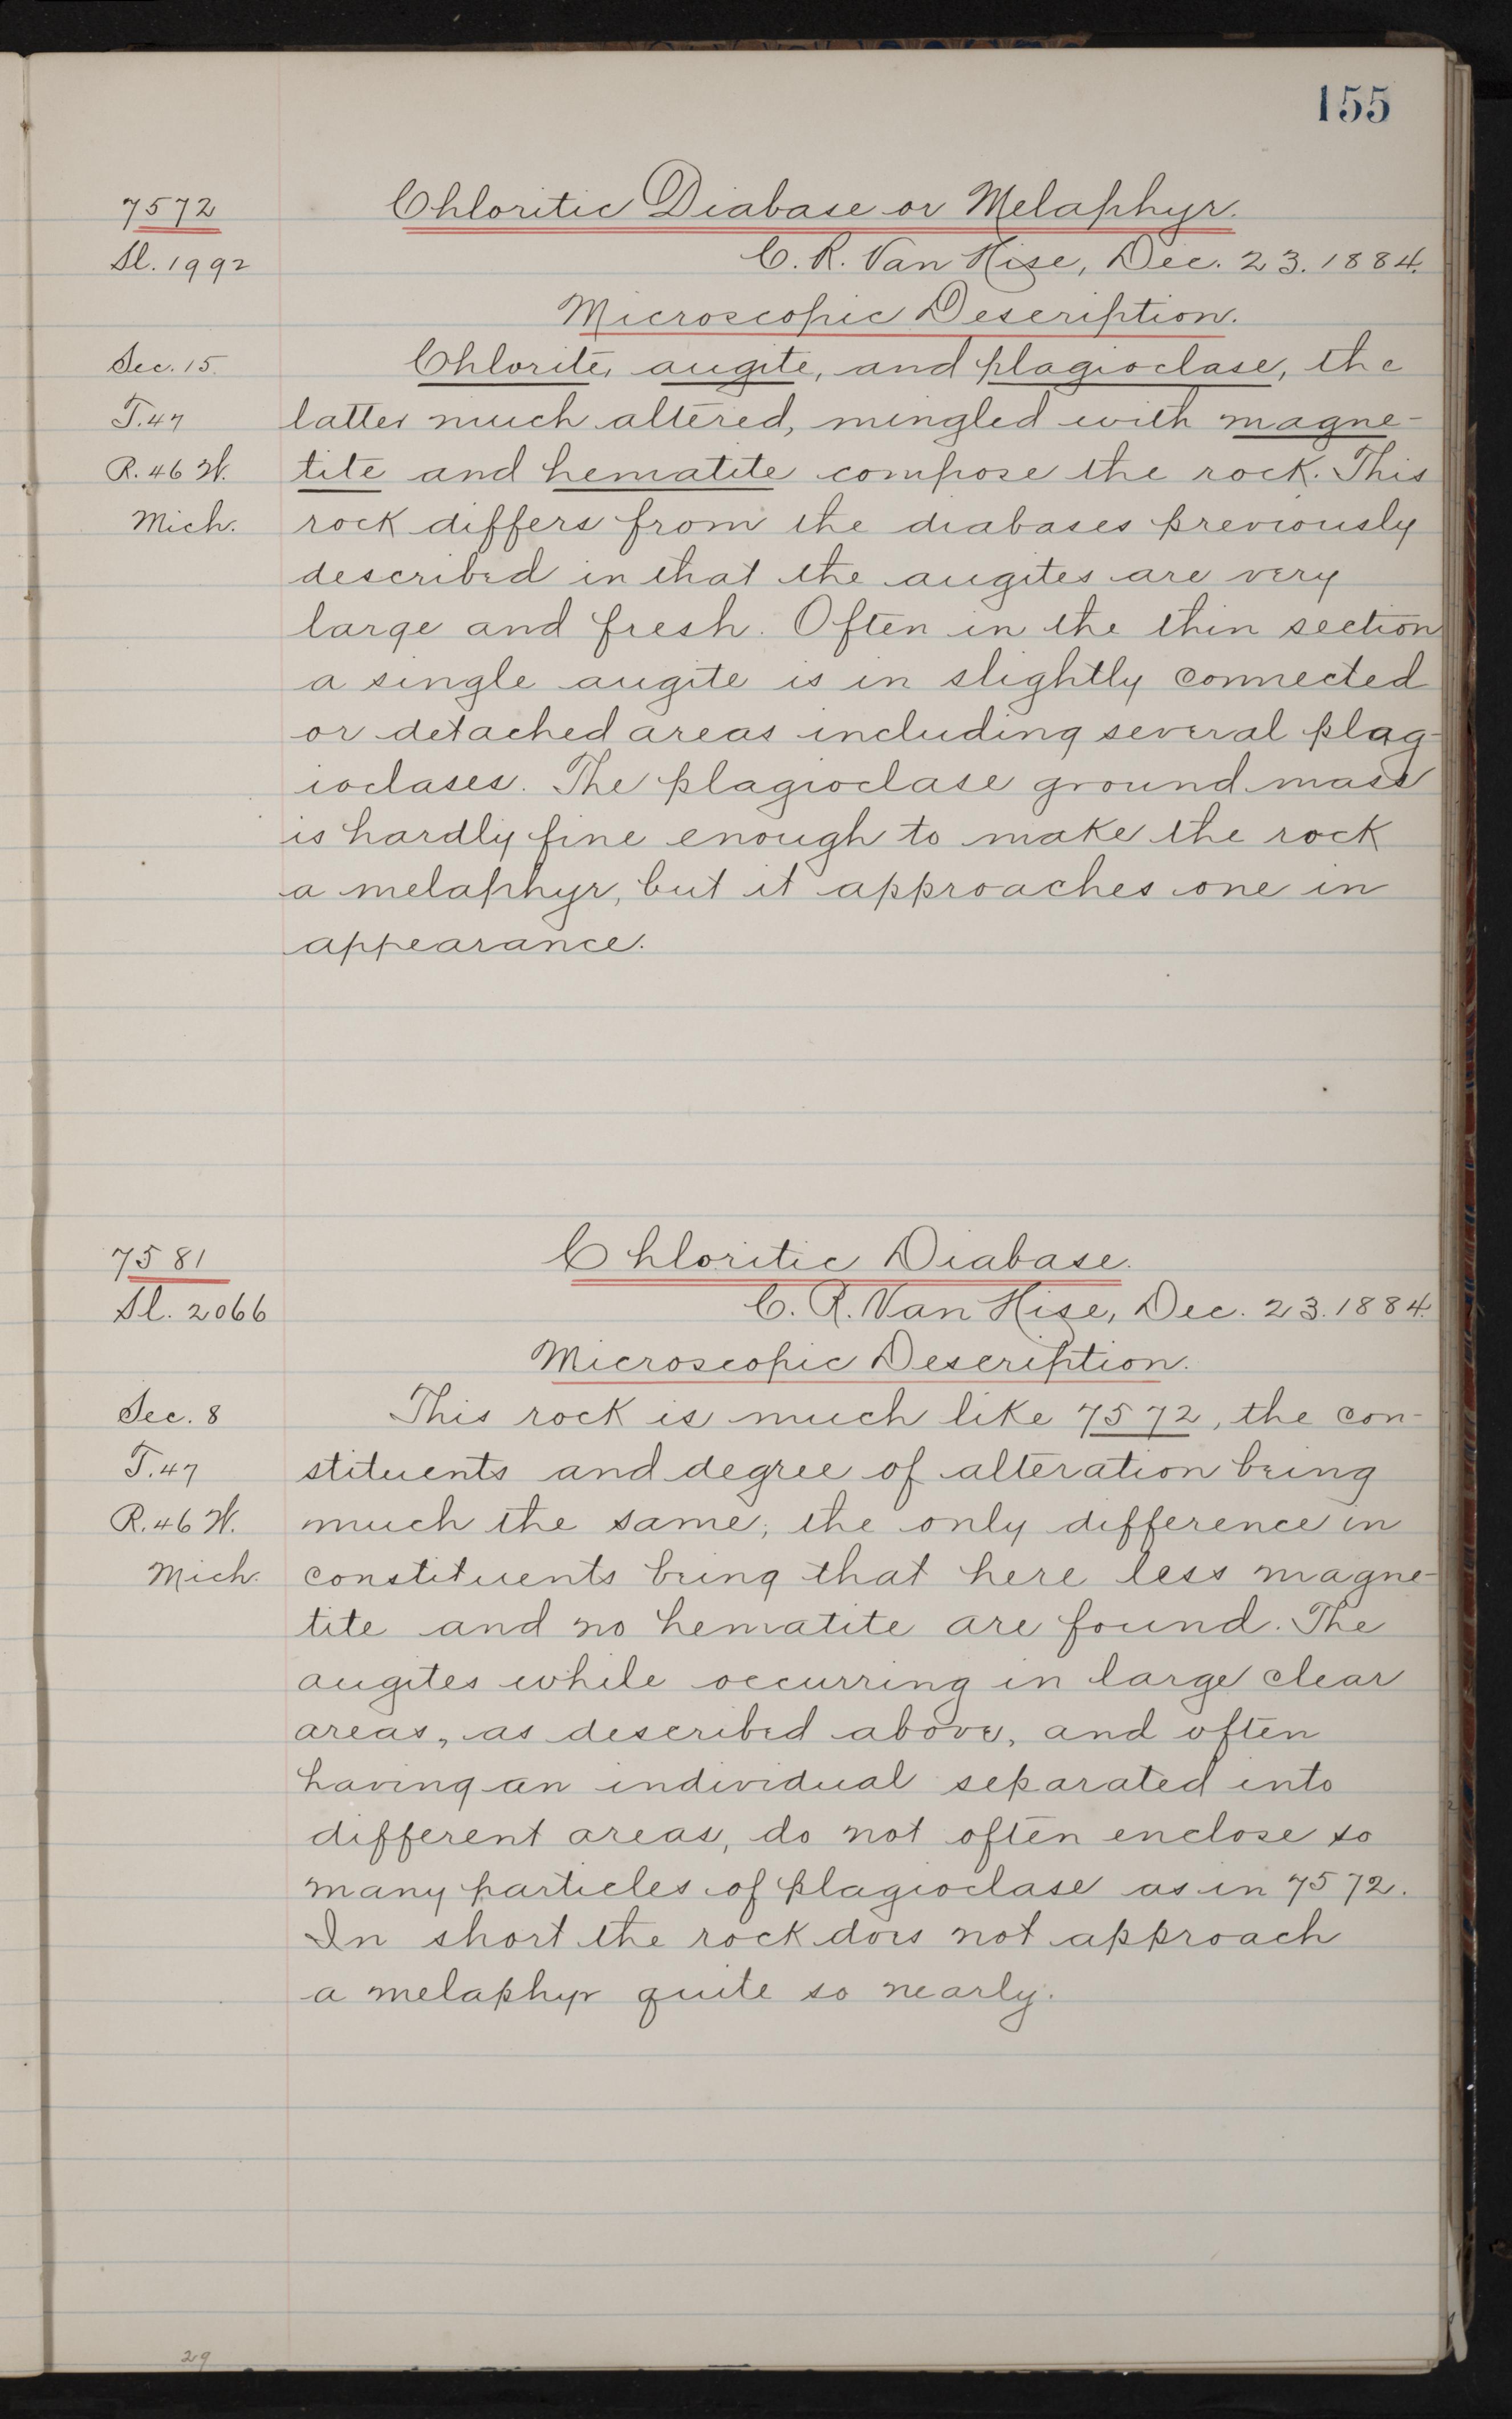 155
7572 Chloritic Diabase or Melaphyr.
Sl. 1992 C. R. Van Hise, Dec. 23. 1884.
Microscopic Description.
Sec. 15. Chlorite, augite, and plagioclase, the
T. 47 latter much altered, mingled with magne-
R. 46 W. tite and hematite compose the rock. This
Mich. rock differs from the diabases previously
described in that the augites are very
large and fresh. Often in the thin section
a single augite is in slightly connected
or detached areas including several plag-
ioclases. The plagioclase ground mass
is hardly fine enough to make the rock
a melaphyr, but it approaches one in
appearance.
7581 Chloritic Diabase.
Sl. 2066 C. R. Van Hise, Dec. 23. 1884.
Microscopic Description.
Sec. 8 This rock is much like 7572, the con-
T. 47 stituents and degree of alteration being
R. 46 W. much the same; the only difference in
Mich. constituents being that here less magne-
tite and no hematite are found. The
augites while occurring in large clear
areas, as described above, and often
having an individual separated into
different areas, do not often enclose so
many particles of plagioclase as in 7572.
In short the rock does not approach
a melaphyr quite so nearly.
29